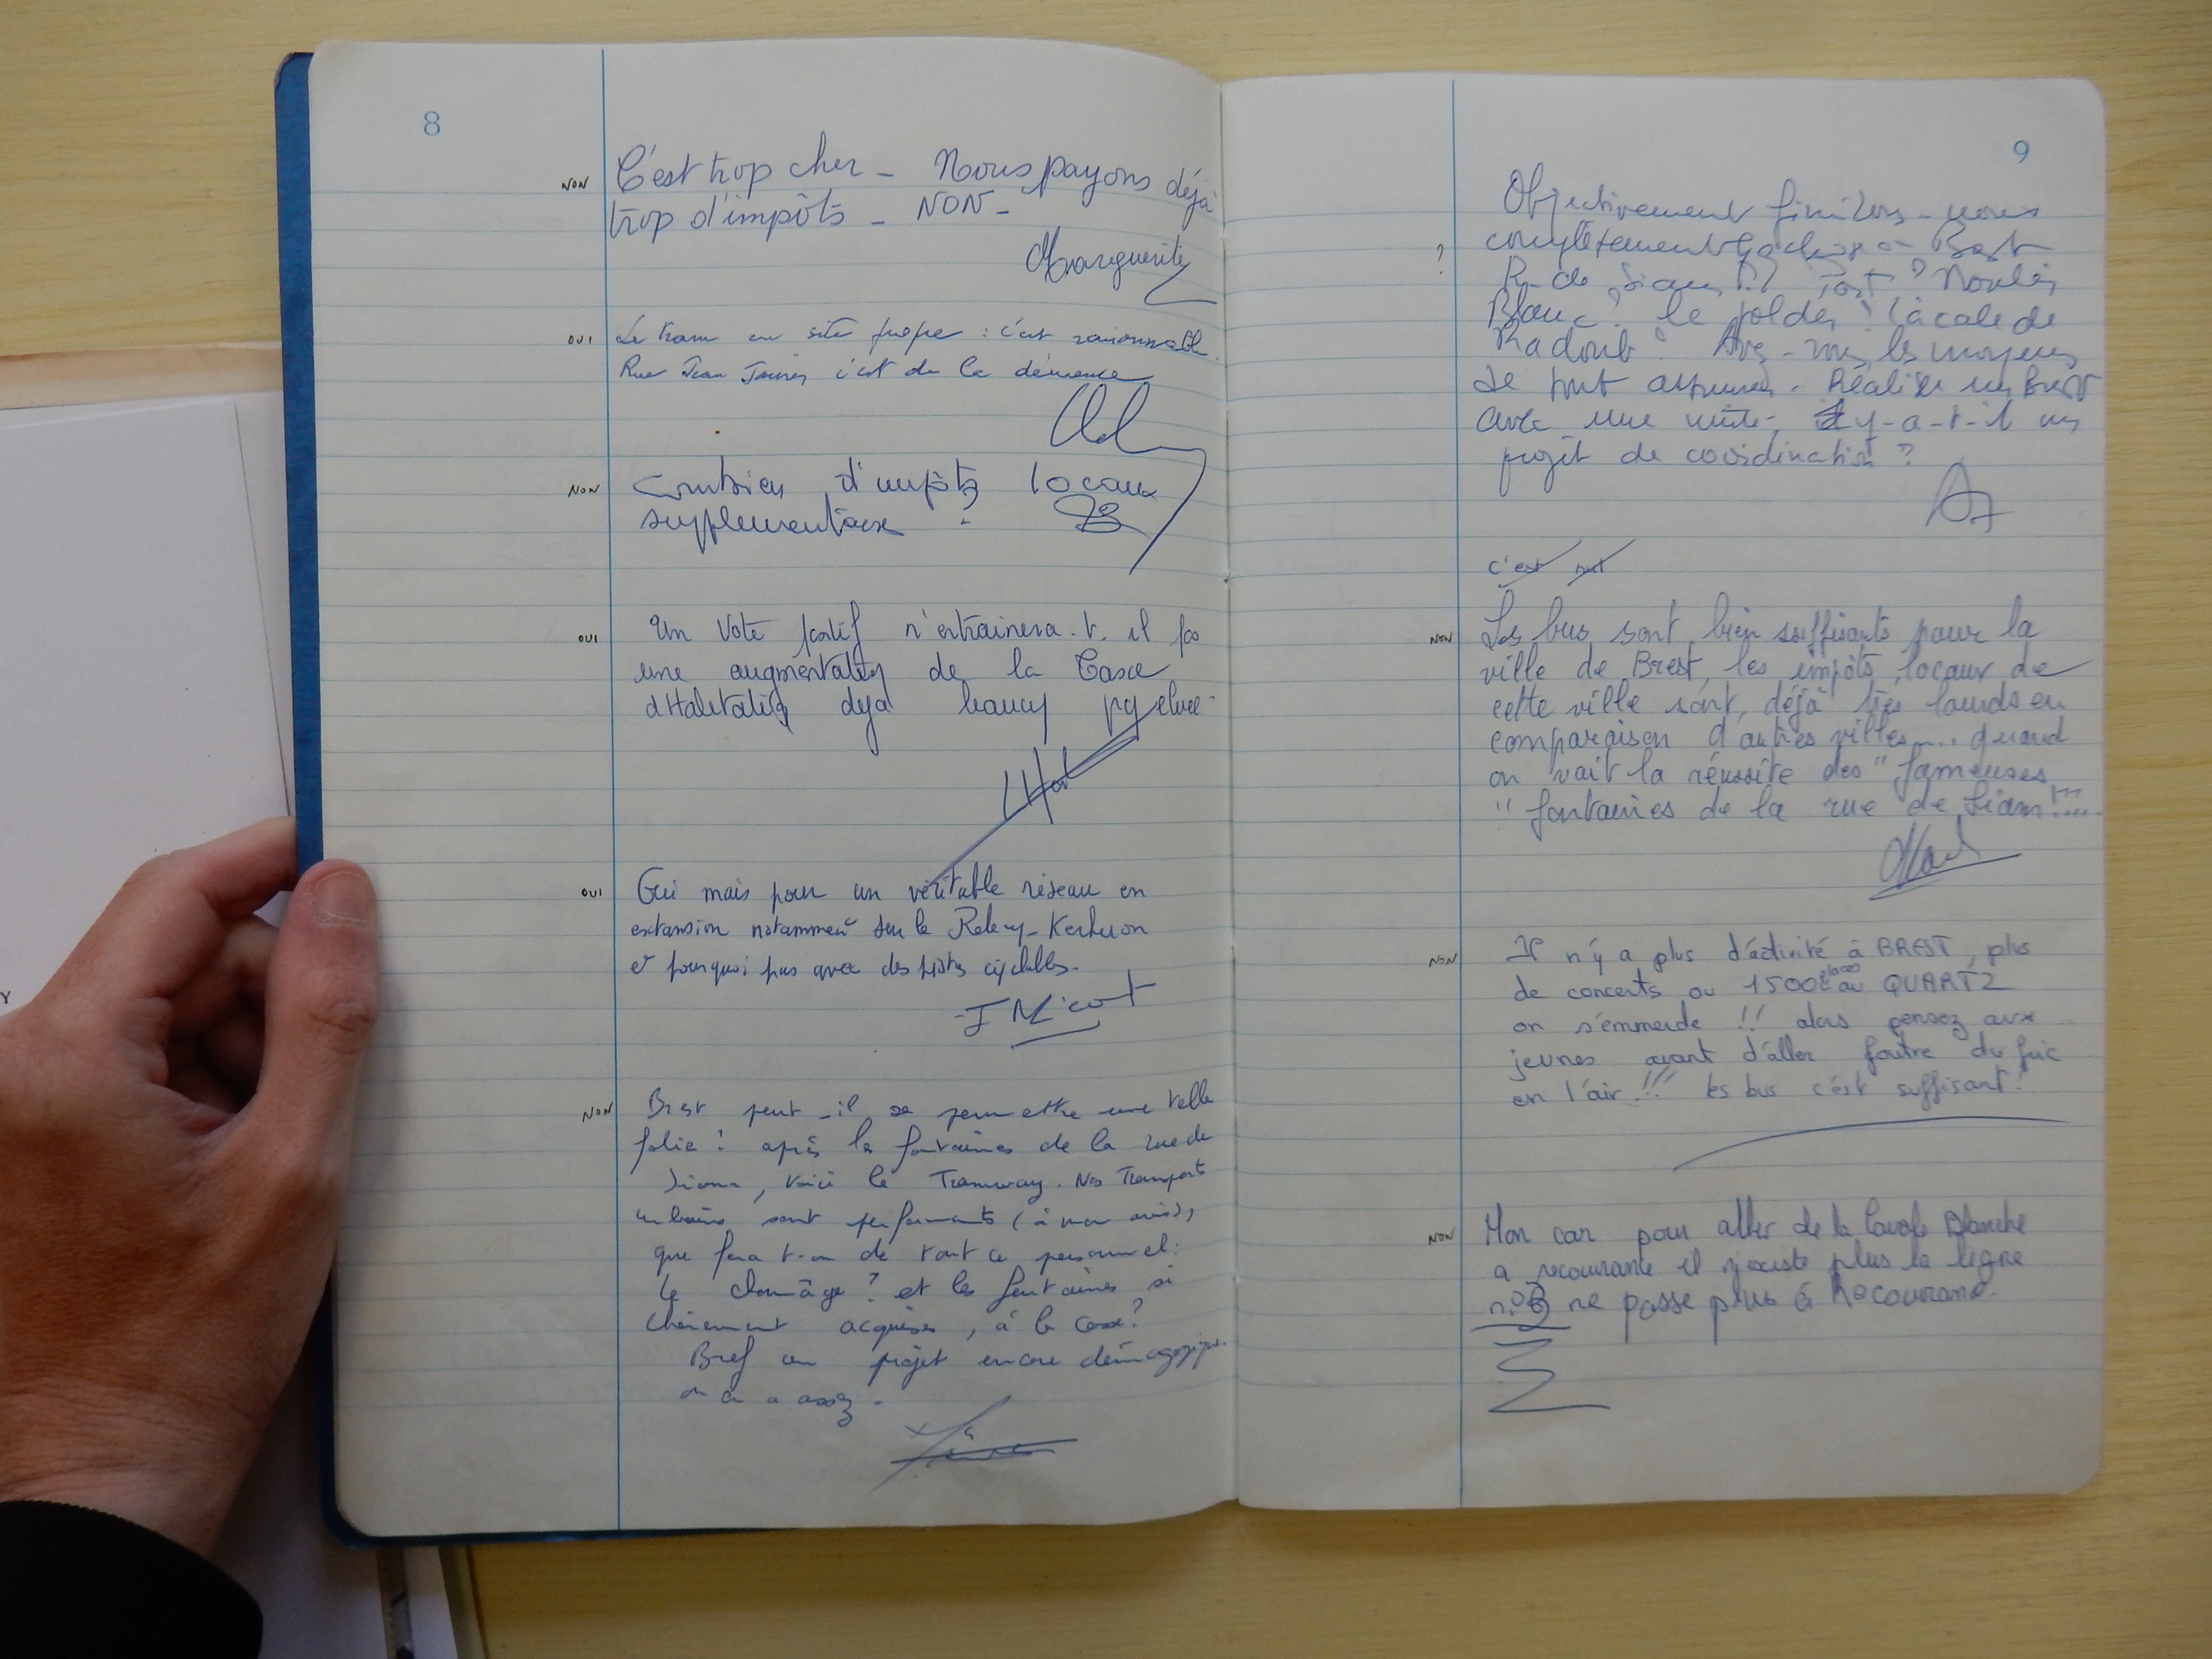 8
NON C'est trop cher - Nous payons déjà
trop d'impôts - NON -
Marguerite
OUI Le tram en site propre : c'est raisonnable.
Rue Jean Jaurès c'est de la démence
NON Combien d'impôts locaux
supplementaire ?
OUI Un vote positif n'entrainera-t-il pas
une augmentation de la Taxe
d'Habitation deja beaucoup
OUI Oui mais pour un véritable réseau en
extansion notamment sur le Relecq-Kerhuon
et pourquoi pas avec des pistes cyclables.
NON Brest peut-il se permettre une telle
folie : après les fontaines de la rue de
Siam, voici le Tramway. Nos Transports
urbains sont performants (à mon avis),
que fera t-on de tout ce personnel :
le chomâge ? et les fontaines si
chèrement acquises, à la casse ?
Bref un projet encore démagogique.
on en a assez.
Y
9
Objectivement finirons-nous
complètement à Brest
? R. de Siam ? Port ? Moulin
Blanc ? le polder ? la cale de
Radoub ? Avez-vous les moyens
de tout assumer. Réaliser un Brest
avec une unité. Y-a-t-il un
projet de coordination ?
c'est
NON Les bus sont bien suffisants pour la
ville de Brest, les impôts locaux de
cette ville sont, déjà très lourds en
comparaison d'autres villes.... quand
on voit la réussite des "fameuses
"fontaines de la rue de Siam !!....
NON Il n'y a plus d'activité à BREST, plus
de concerts ou 1500 places au QUARTZ
on s'emmerde !! alors pensez aux
jeunes avant d'aller foutre du fric
en l'air !!! les bus c'est suffisant !
NON Mon car pour aller de la Cavale Blanche
a recouvrance il n'existe plus la ligne
ne passe plus à Recouvrance.